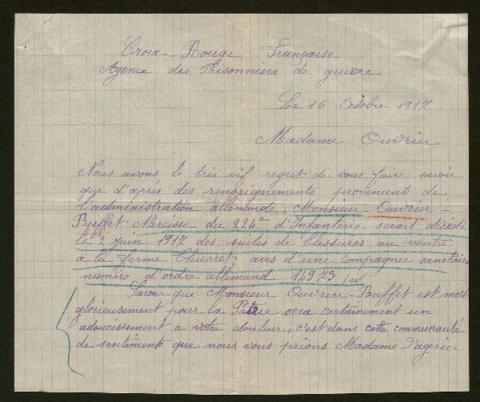 Croix Rouge Française
Agence des Prisonniers de guerre
Le 16 Octobre 1917
Madame Ouvrier
Nous avons le très vif regret de vous faire savoir
que d'après des renseignements provenant de
l'administration allemande, Monsieur Ouvrier -
Buffet Narcisse du 224e d'Infanterie serait décédé
le 2 juin 1917 des suites de blessures au ventre
à la ferme Thierret; avis d'une compagnie sanitaire
numéro d'ordre allemand 14973
Savoir que Monsieur Ouvrier-Buffet est mort
glorieusement pour la Patrie sera certainement un
adoucissement à votre douleur, c'est dans cette communauté
de sentiments que nous vous prions Madame d'agréer